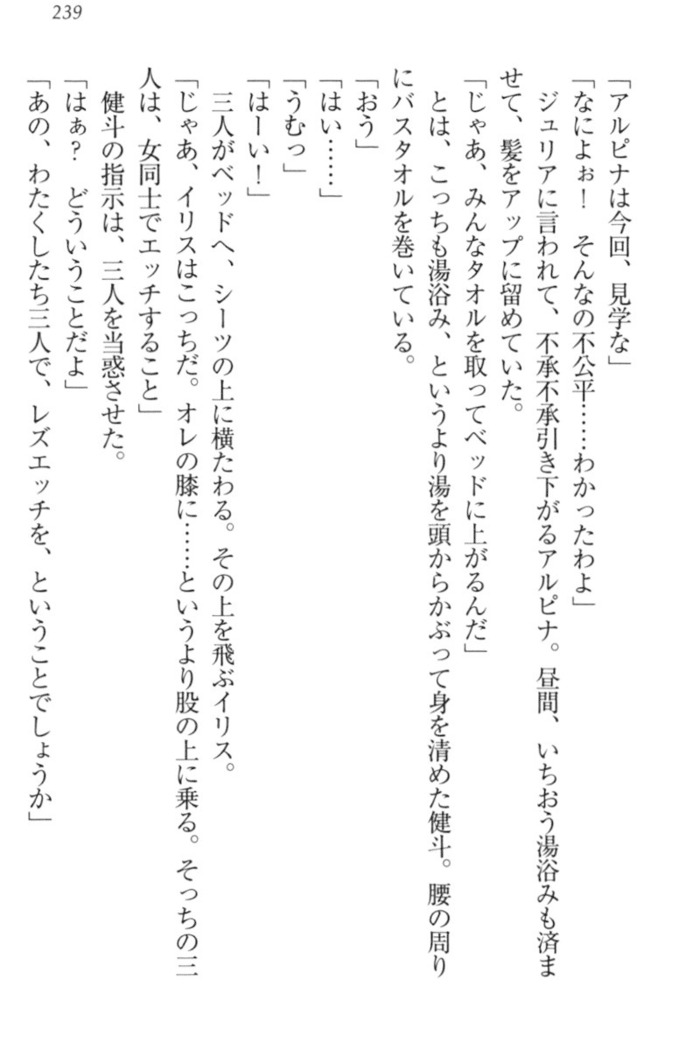 239
「アルピナは今回、見学な」
「なによぉ！　そんなの不公平……わかったわよ」
　ジュリアに言われて、不承不承引き下がるアルピナ。昼間、いちおう湯浴みも済ま
せて、髪をアップに留めていた。
「じゃあ、みんなタオルを取ってベッドに上がるんだ」
　とは、こっちも湯浴み、というより湯を頭からかぶって身を清めた健斗。腰の周り
にバスタオルを巻いている。
「おう」
「はい……」
「うむっ」
「はーい！」
　三人がベッドへ、シーツの上に横たわる。その上を飛ぶイリス。
「じゃあ、イリスはこっちだ。オレの膝に……というより股の上に乗る。そっちの三
人は、女同士でエッチすること」
　健斗の指示は、三人を当惑させた。
「はぁ？　どういうことだよ」
「あの、わたくしたち三人で、レズエッチを、ということでしょうか」